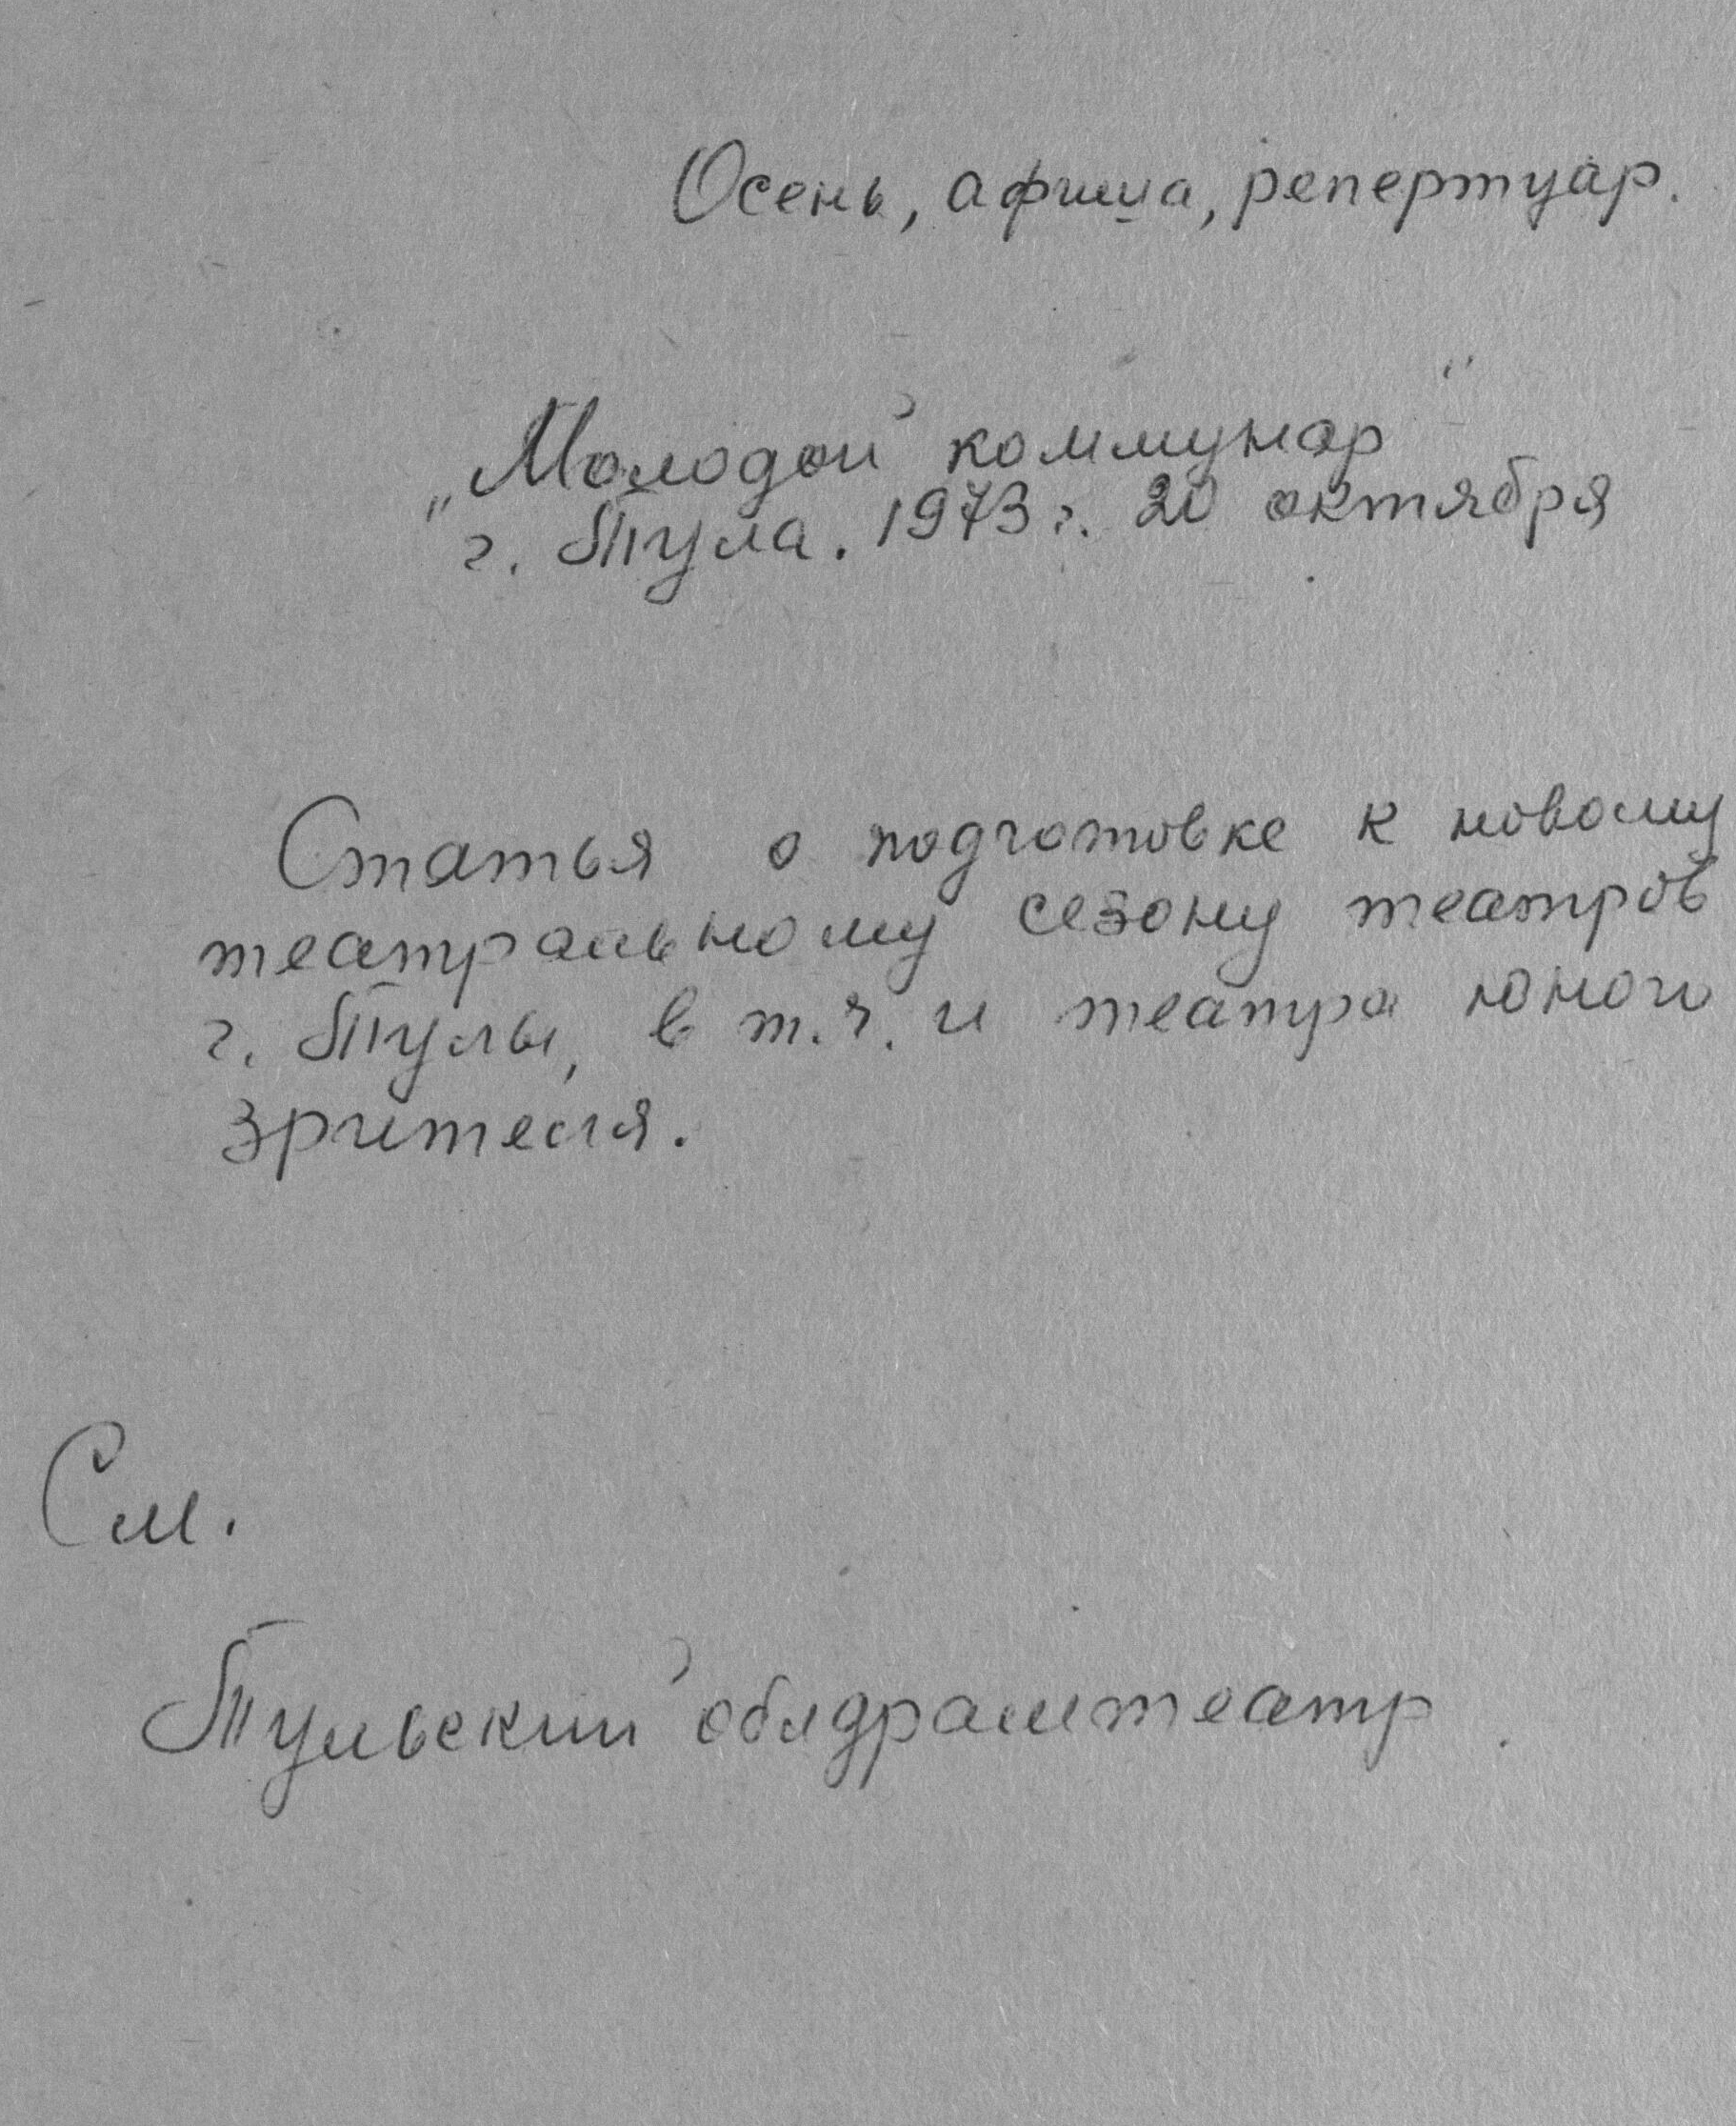 Осень, афиша, репертуар.
„Молодой коммунар"
г. Тула. 1973 г. 20 октября
Статья о подготовке к новому
театральному сезону театров
г. Тулы, в т.ч. и театра юного
зрителя.
См.
Тульский облдрамтеатр.